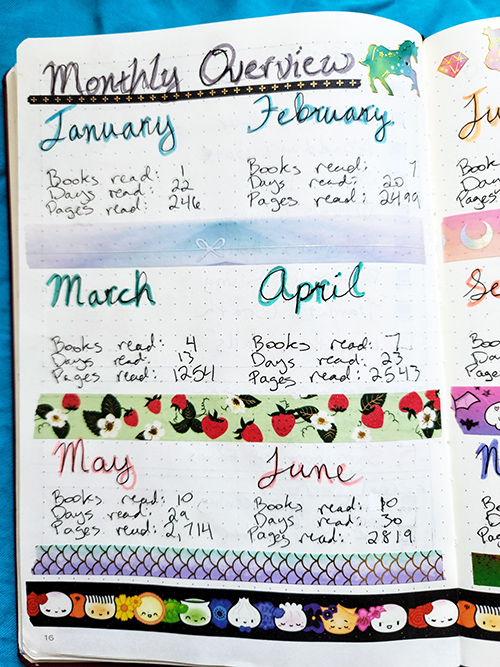 Monthly Overview
January
Books read: 1
Days read: 22
Pages read: 246
February
Books read: 7
Days read: 20
Pages read: 2499
March
Books read: 4
Days read: 13
Pages read: 1254
April
Books read: 7
Days read: 23
Pages read: 2543
May
Books read: 10
Days read: 29
Pages read: 2,714
June
Books read: 10
Days read: 30
Pages read: 2819
16